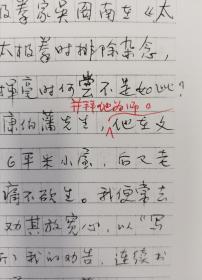 极拳家吴图南在《太
太极拳时排除杂念，
挥毫时何尝不是如此？
并拜他为师。
康伯藩先生，他在文
6平米小屋，后又老
痛不欲生。我便常去
劝其放宽心，以“写
我的劝告，连续书